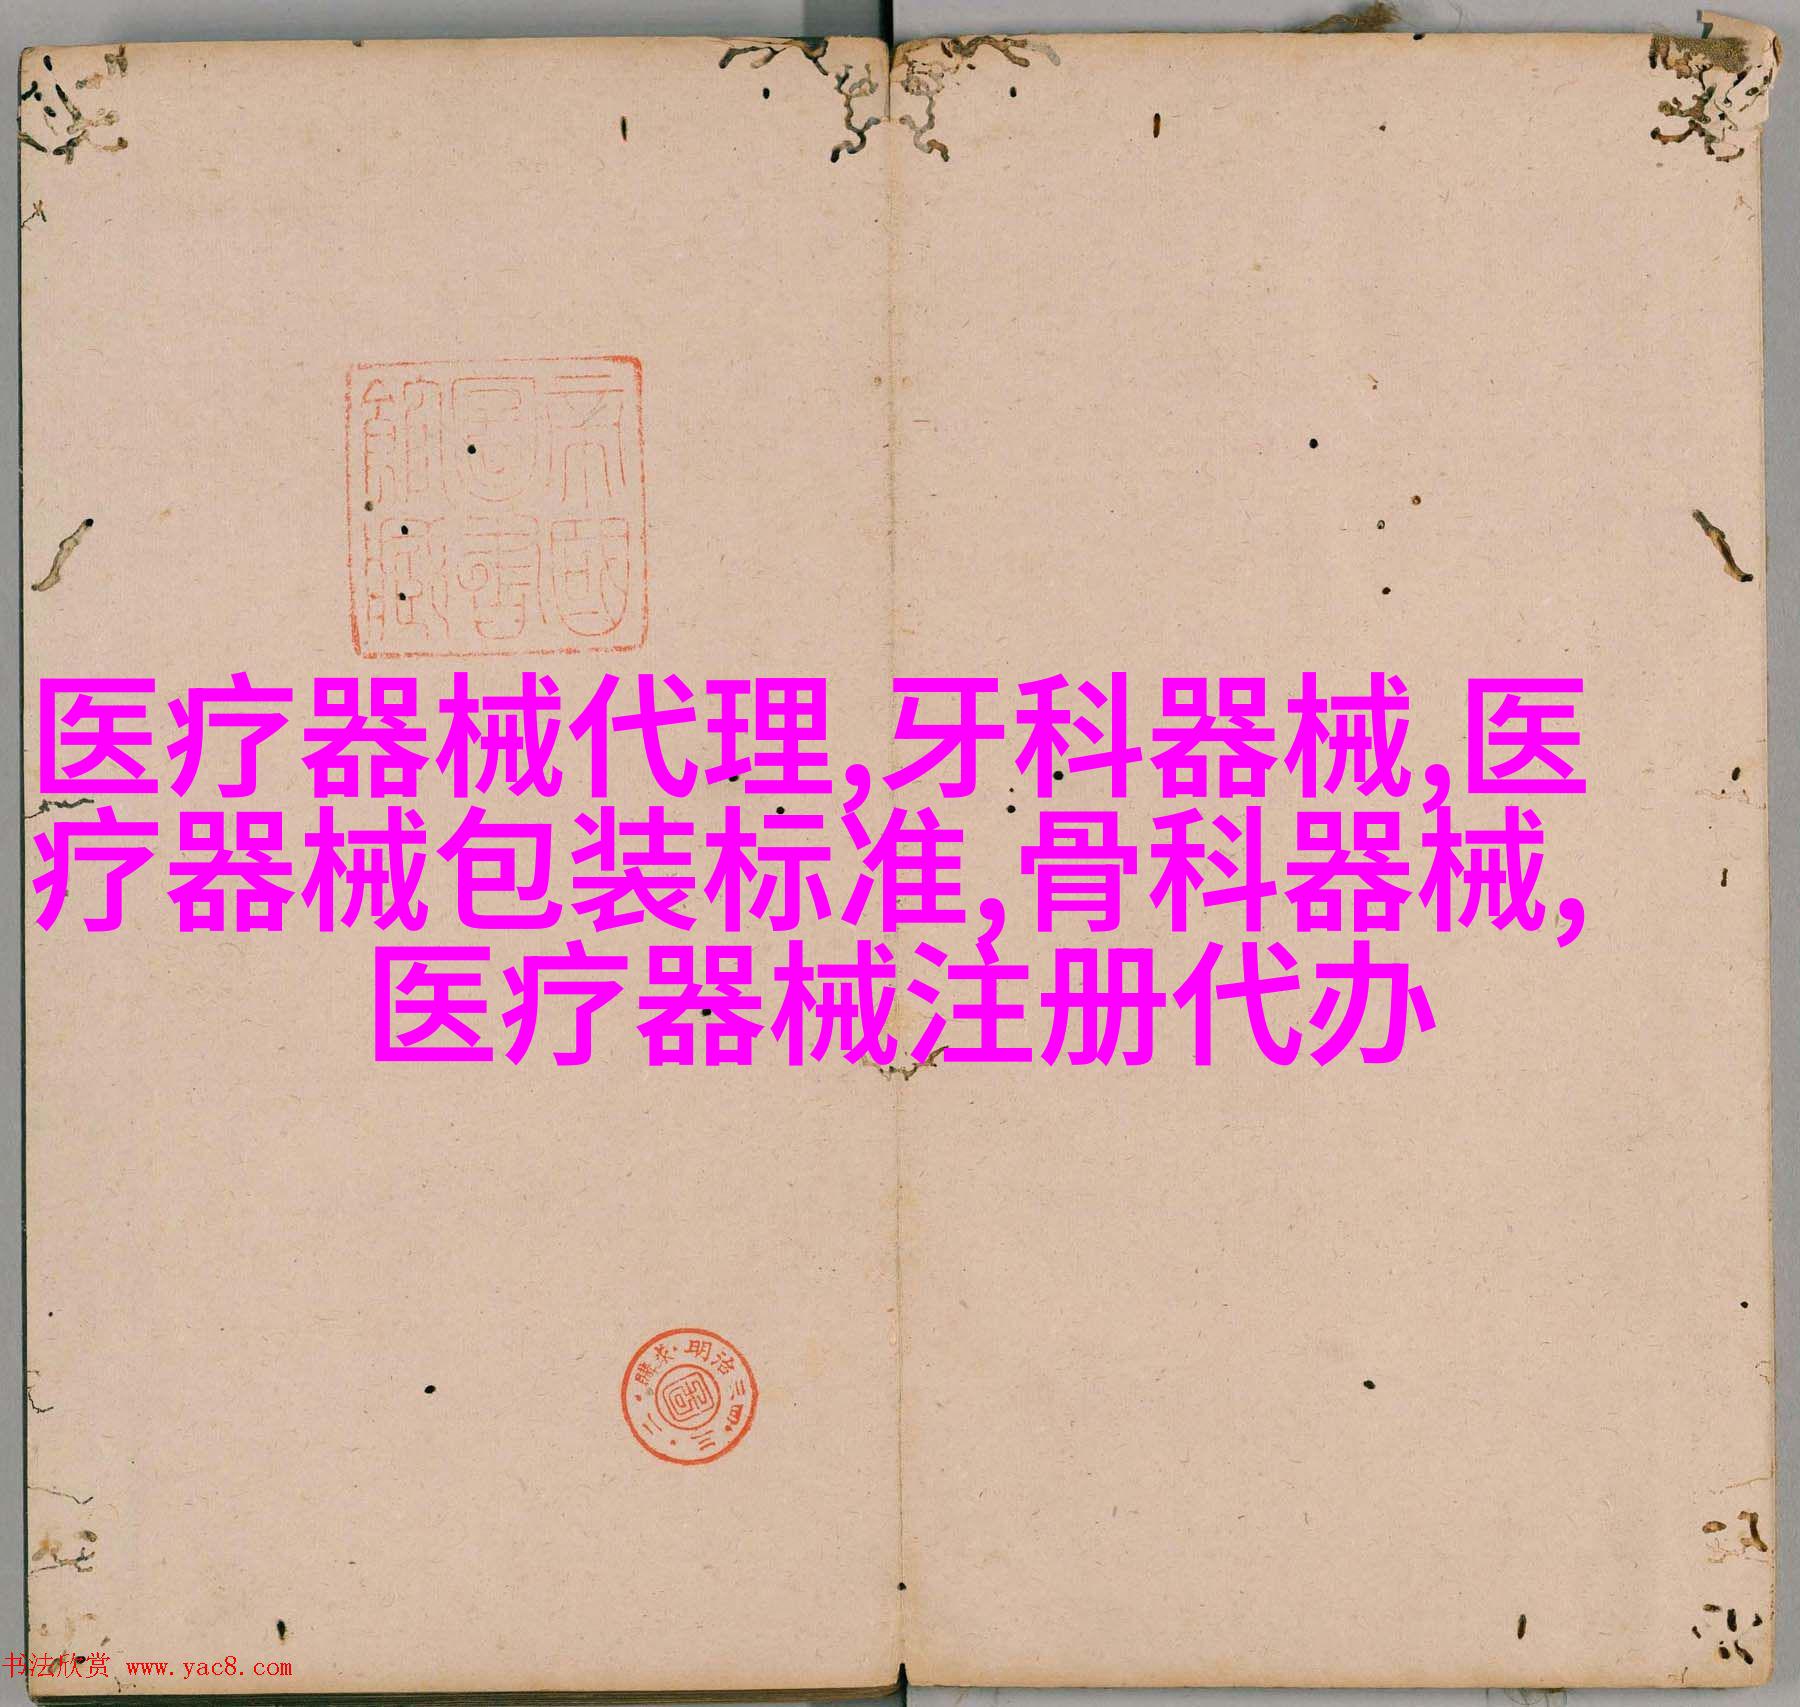 帝國
圖書
館藏
医疗器械代理,牙科器械,医
疗器械包装标准,骨科器械,
医疗器械注册代办
明治三四・三・二・購求・
书法欣赏 www.yac8.com